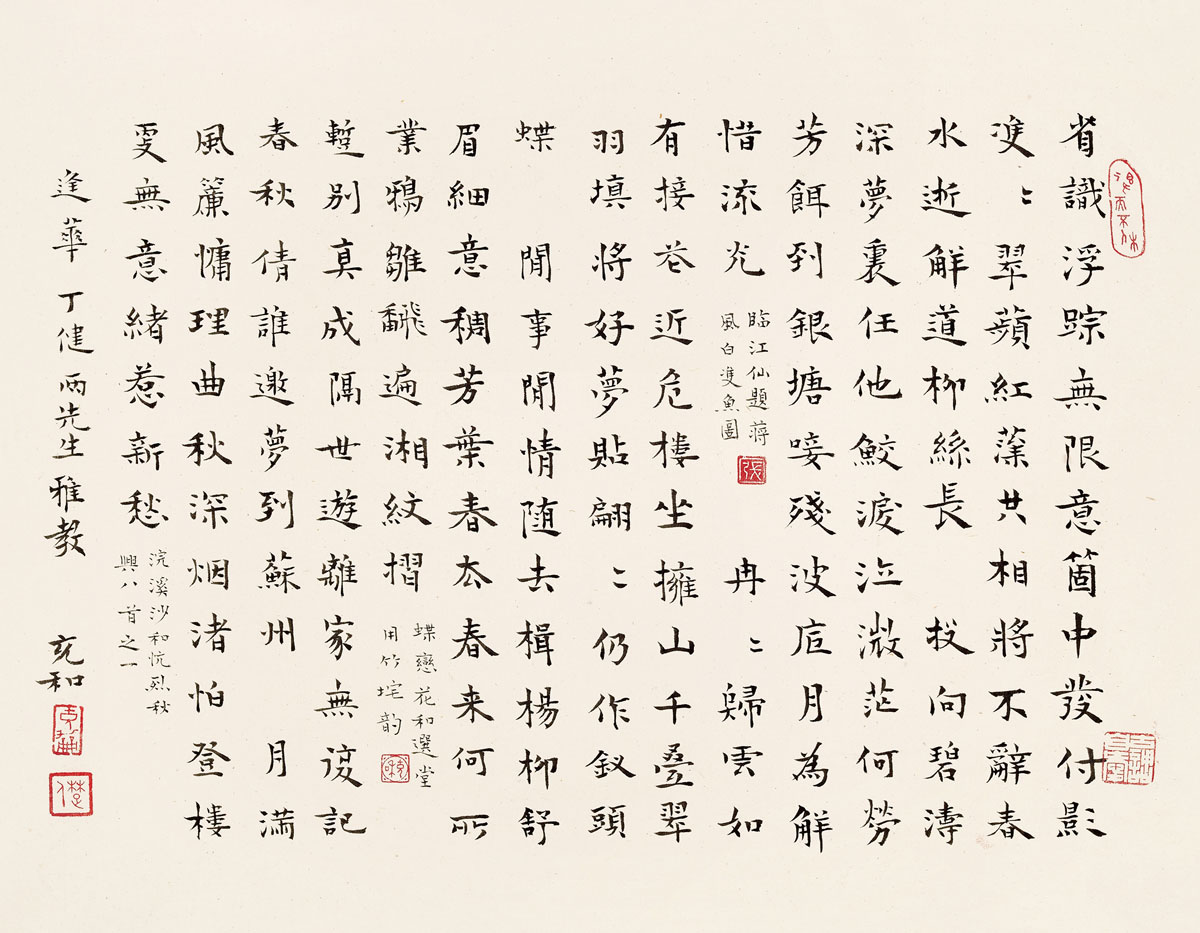 省識浮踪無限意箇中發付影
雙〻翠蘋紅藻共相將不辭春
水逝解道柳絲長 投向碧濤
深夢裏任他鮫淚泣微茫何勞
芳餌到銀塘唼殘波底月為解
惜流光
臨江仙題蔣
風白雙魚圖
張
冉〻歸雲如
有接花近危樓坐擁山千疊翠
羽填將好夢貼翩〻仍作釵頭
蝶 閒事閒情随去楫楊柳舒
眉細意稠芳葉春去春来何所
業鴉雛飜遍湘紋摺
蝶戀花和選堂
用竹垞韵
充和
蹔別真成隔世遊離家無復記
春秋倩誰邀夢到蘇州 月滿
風簾慵理曲秋深烟渚怕登樓
更無意緒惹新愁
浣溪沙和忼烈秋
興八首之一
逢華丁健兩先生雅教 充和